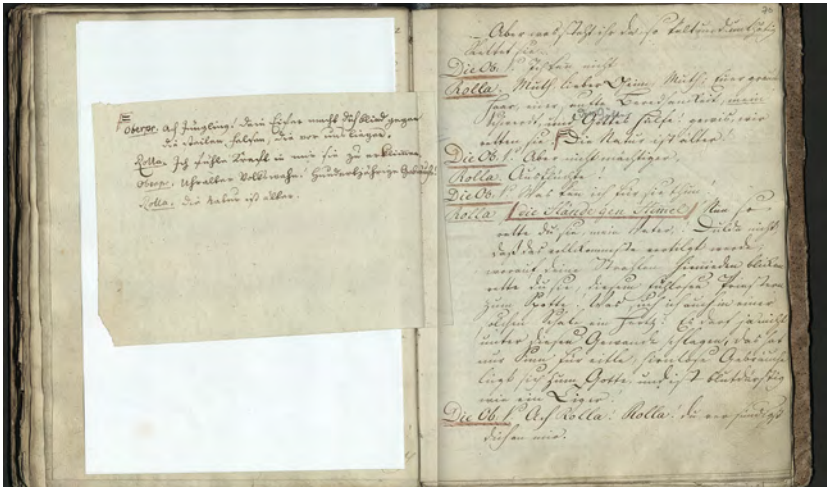 Oberpr. Ach Jüngling! dein Eifer macht dich blind gegen
die steilen Felsen, die vor uns liegen.
Rolla. Ich fühle Kraft in mir sie zu erklimmen.
Oberpr. Uhralter Volkswahn! Hundertjährige Gebräuche!
Rolla. die Natur ist älter.
70
Aber was steht ihr da so kalt und unthätig
Rettet sie.
Die Ob. Pr. Ich kan nicht
Rolla. Muth, lieber Oheim, Muth! Euer graues
Haar, eure sanfte Beredsamkeit, mein
Schwerdt, und Gottes Hülfe! gewis, wir
retten sie! Die Natur ist älter!
Die Ob. Pr. Aber nicht mächtiger.
Rolla. Ausflüchte!
Die Ob. Pr. Was kan ich für sie thun?
Rolla (die Hände gen Himel) Nun so
rette du sie, mein Vater! Dulde nicht
daß das vollkommenste vertilgt werde,
worauf deine Strahlen hienieden blicken
rette du sie, diesem fühllosen Priester
zum Spotte! Was such ich auch in einer
solchen Schale ein Hertz! Es darf ja nicht
unter diesem Gewande schlagen, das hat
nur Sinn für eitle, hirnlose Gebräuche
lügt sich zum Gotte, und ist blutdürstig
wie ein Tiger!
Die Ob. Pr. Ach Rolla! Rolla! du versündigst
dich an mir.